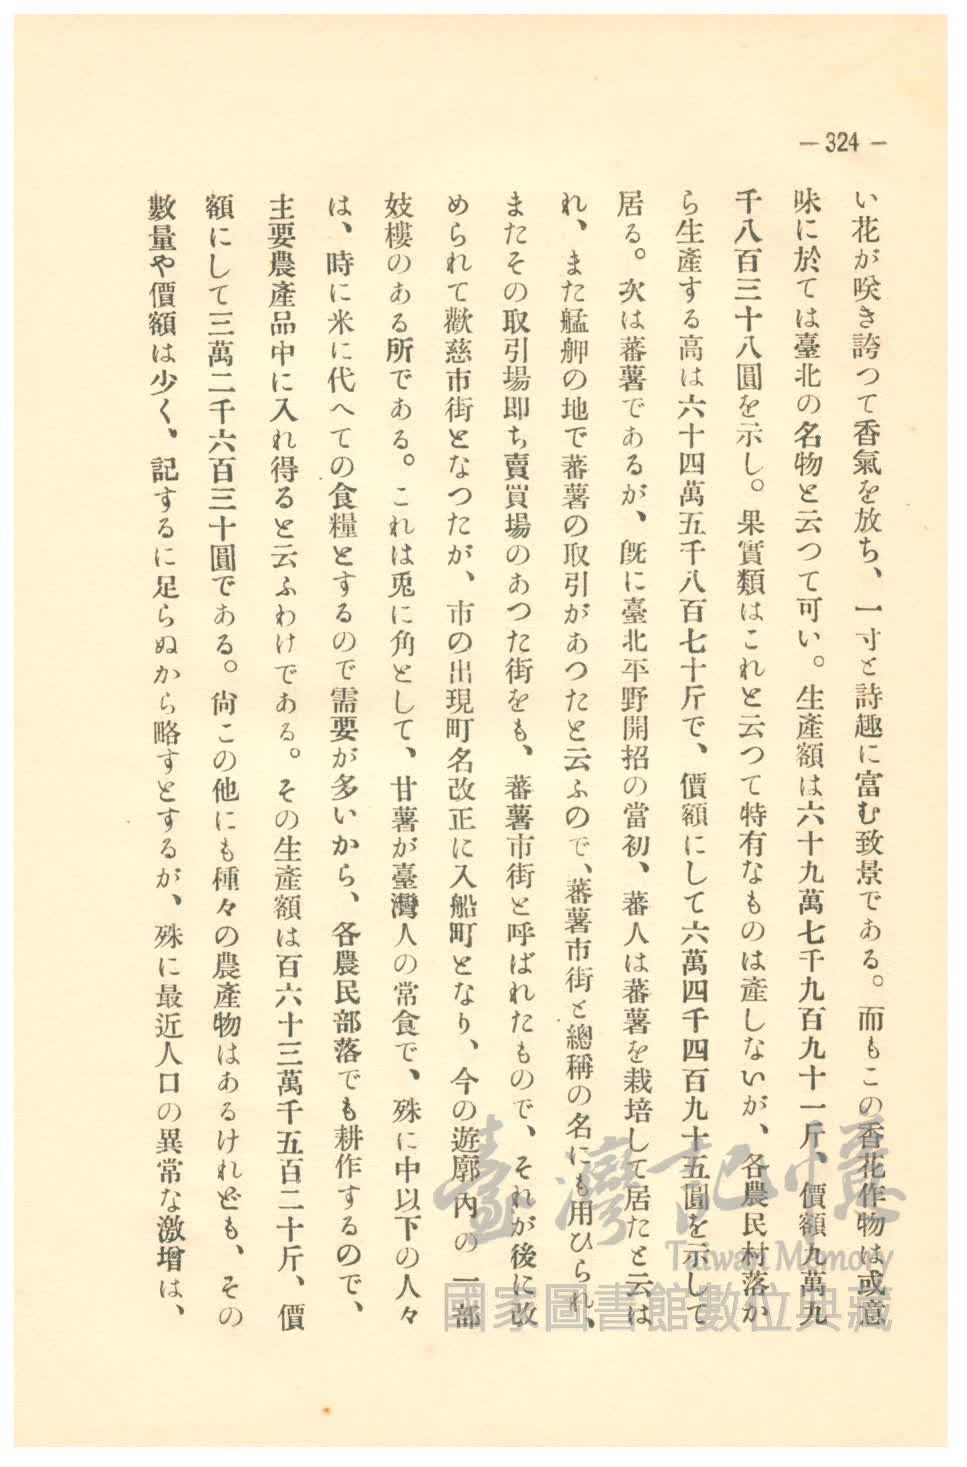 — 324 —
い花が咲き誇つて香氣を放ち、一寸と詩趣に富む致景である。而もこの香花作物は或意
味に於ては臺北の名物と云つて可い。生產額は六十九萬七千九百九十一斤、價額九萬九
千八百三十八圓を示し。果實類はこれと云つて特有なものは產しないが、各農民村落か
ら生產する高は六十四萬五千八百七十斤で、價額にして六萬四千四百九十五圓を示して
居る。次は蕃薯であるが、既に臺北平野開招の當初、蕃人は蕃薯を栽培して居たと云は
れ、また艋舺の地で蕃薯の取引があつたと云ふので、蕃薯市街と總稱の名にも用ひられ、
またその取引場卽ち賣買場のあつた街をも、蕃薯市街と呼ばれたもので、それが後に改
められて歡慈市街となつたが、市の出現町名改正に入船町となり、今の遊廓內の一部
妓樓のある所である。これは兎に角として、甘薯が臺灣人の常食で、殊に中以下の人々
は、時に米に代へての食糧とするので需要が多いから、各農民部落でも耕作するので、
主要農產品中に入れ得ると云ふわけである。その生產額は百六十三萬千五百二十斤、價
額にして三萬二千六百三十圓である。尙この他にも種々の農產物はあるけれども、その
數量や價額は少く、記するに足らぬから略すとするが、殊に最近人口の異常な激增は、
臺灣記憶
Taiwan Memory
國家圖書館數位典藏